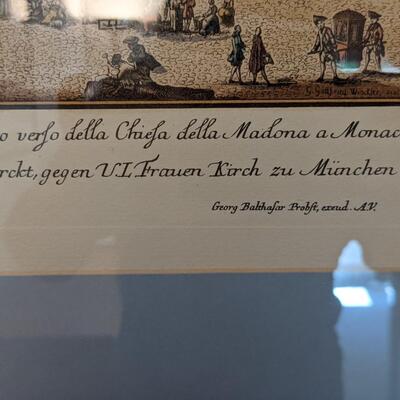 G. Gottfried Winckler,
o verſo della Chieſa della Madona a Monac
rckt, gegen U.L. Frauen Kirch zu München
Georg Balthaſar Probſt, excud. A.V.